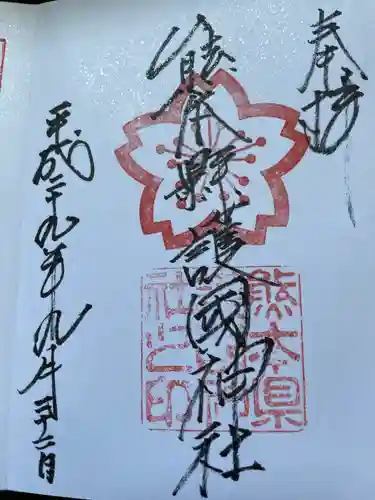 奉拝
熊本縣護國神社
熊本県
護国神
社之印
平成二十九年九月二十二日